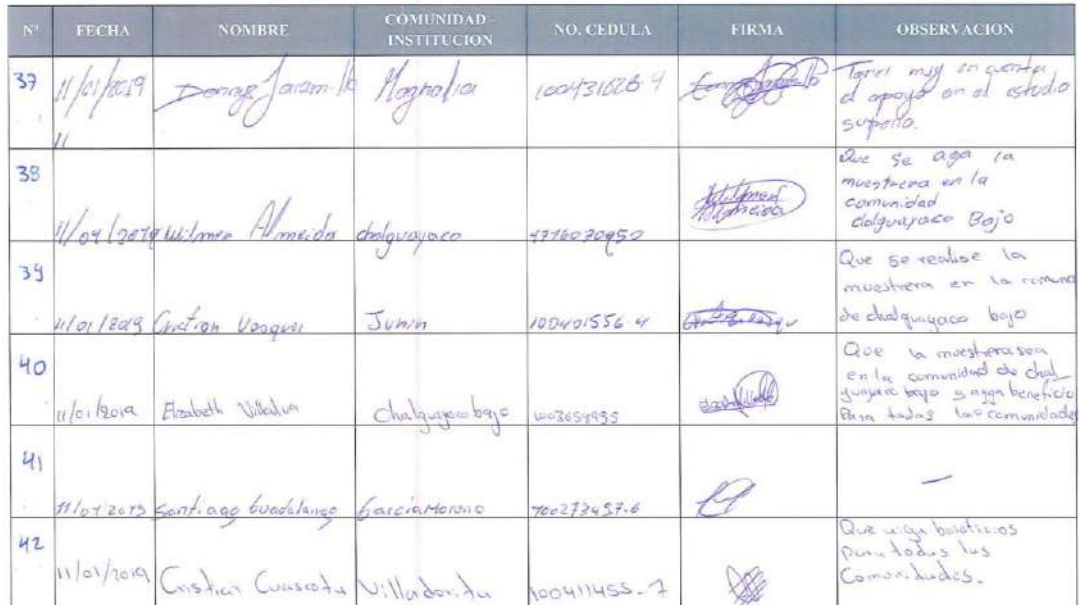 N° FECHA NOMBRE COMUNIDAD - INSTITUCION NO. CEDULA FIRMA OBSERVACION
37 11/01/2019 Jaramillo Magnalia
Tener muy en cuenta
el apoyo en el estudio
superio.
38 11/01/2019 Wilmer Almeida chalguayaco Wilmer Almeida
Que se aga la
muestrera en la
comunidad
chalguayaco Bajo
39 11/01/2019 Cristian Vasquez Junin 100401556-4
Que se realise la
muestrera en la comuna
de chalguayaco bajo
40 11/01/2019 Elizabeth Villalva Chalguayaco bajo 1003659935
Que la muestrera sea
en la comunidad de chal
guayaco bajo y ayga beneficio
Para todas las comunidades
41 11/01/2019 Santiago Guadalango García Moreno 100273457-6 —
42 11/01/2019 Cristian Cuascota Villadorita 100411455-7
Que aiga beneficios
para todas las
Comunidades.